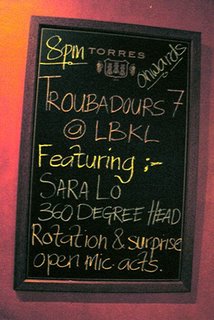 8pm TORRES onwards
TROUBADOURS 7
@ LBKL
Featuring :-
SARA LO
360 DEGREE HEAD
Rotation & surprise
open mic acts.